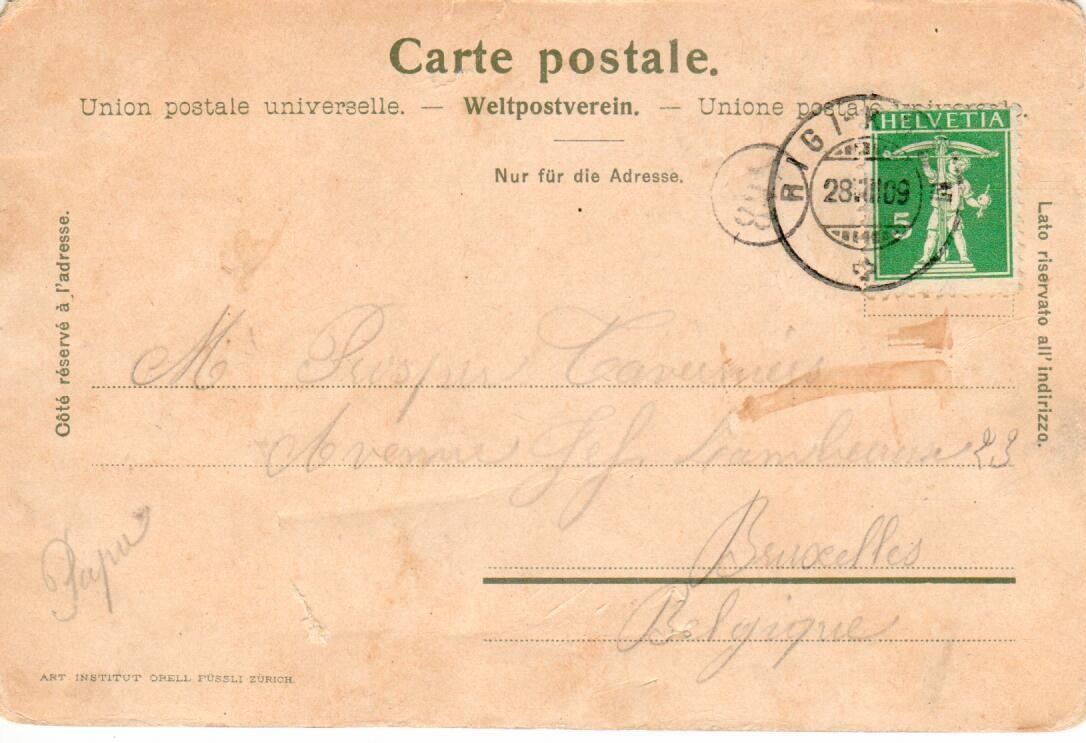 Carte postale.
Union postale universelle. — Weltpostverein. — Unione postale
Nur für die Adresse.
HELVETIA
5
RIGI-
28 09
Côté réservé à l'adresse.
Lato riservato all'indirizzo.
M
Avenue Jef Lambeaux 23
Bruxelles
Belgique
Papa
ART INSTITUT ORELL FÜSSLI ZÜRICH.